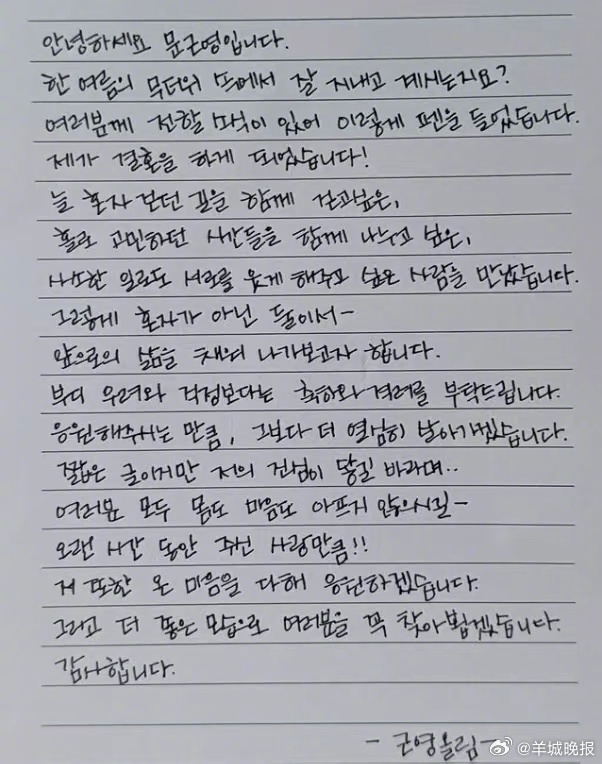 안녕하세요 문근영입니다.
한 여름의 무더위 속에서 잘 지내고 계시는지요?
여러분께 전할 소식이 있어 이렇게 펜을 들었습니다.
제가 결혼을 하게 되었습니다!
늘 혼자 걷던 길을 함께 걷고싶은,
홀로 고민하던 시간들을 함께 나누고 싶은,
사소한 일로도 서로를 웃게 해주고 싶은 사람을 만났습니다.
그렇게 혼자가 아닌 둘이서-
앞으로의 삶을 채워 나가보고자 합니다.
부디 우려와 걱정보다는 축하와 격려를 부탁드립니다.
응원해주시는 만큼, 그보다 더 열심히 살아가겠습니다.
짧은 글이지만 저의 진심이 닿길 바라며..
여러분 모두 몸도 마음도 아프지 않으시길-
오랜 시간 동안 주신 사랑만큼!!
저 또한 온 마음을 다해 응원하겠습니다.
그리고 더 좋은 모습으로 여러분을 꼭 찾아뵙겠습니다.
감사합니다.
- 근영올림 -
@羊城晚报